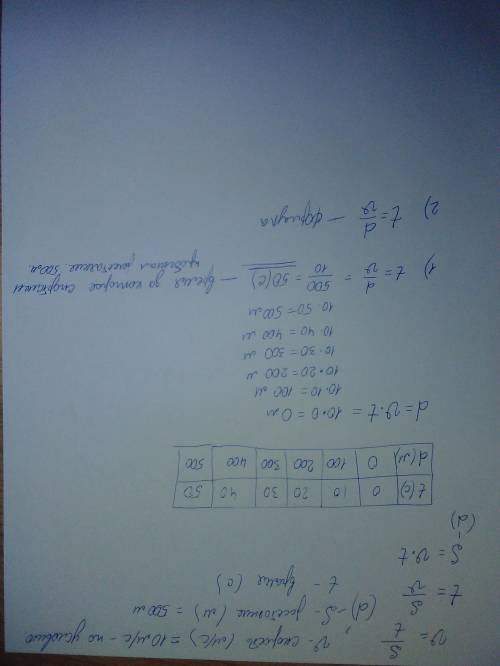 v = S/t, v - скорость (м/с) = 10 м/с - по условию
t = S/v (d) - S - расстояние (м) = 500 м
t - время (с)
S = v · t
(d)
t(c) 0 10 20 30 40 50
d(м) 0 100 200 300 400 500
d = v · t = 10 · 0 = 0 м
10 · 10 = 100 м
10 · 20 = 200 м
10 · 30 = 300 м
10 · 40 = 400 м
10 · 50 = 500 м
1) t = d/v = 500/10 = 50 (с) — время за которое спортсмен
пробежал расстояние 500 м.
2) t = d/v — формула